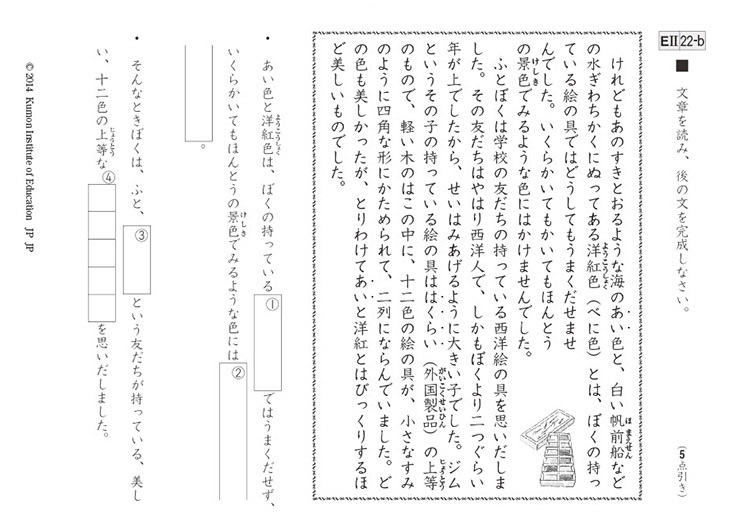 EⅡ 22-b
■ 文章を読み、後の文を完成しなさい。
（5点引き）
ほまえせん
けれどもあのすきとおるような海のあい色と、白い帆前船など
ようこうしょく
の水ぎわちかくにぬってある洋紅色（べに色）とは、ぼくの持っ
ている絵の具ではどうしてもうまくだせませ
んでした。いくらかいてもかいてもほんとう
けしき
の景色でみるような色にはかけませんでした。
ふとぼくは学校の友だちの持っている西洋絵の具を思いだしま
した。その友だちはやはり西洋人で、しかもぼくより二つぐらい
年が上でしたから、せいはみあげるように大きい子でした。ジム
がいこくせいひん じょうとう
というその子の持っている絵の具ははくらい（外国製品）の上等
のもので、軽い木のはこの中に、十二色の絵の具が、小さなすみ
のように四角な形にかためられて、二列にならんでいました。ど
の色も美しかったが、とりわけてあいと洋紅とはびっくりするほ
ど美しいものでした。
ようこうしょく
・あい色と洋紅色は、ぼくの持っている①ではうまくだせず、
けしき
いくらかいてもほんとうの景色でみるような色には②
。
・そんなときぼくは、ふと、③という友だちが持っている、美し
じょうとう
い、十二色の上等な④を思いだしました。
© 2014 Kumon Institute of Education JP JP